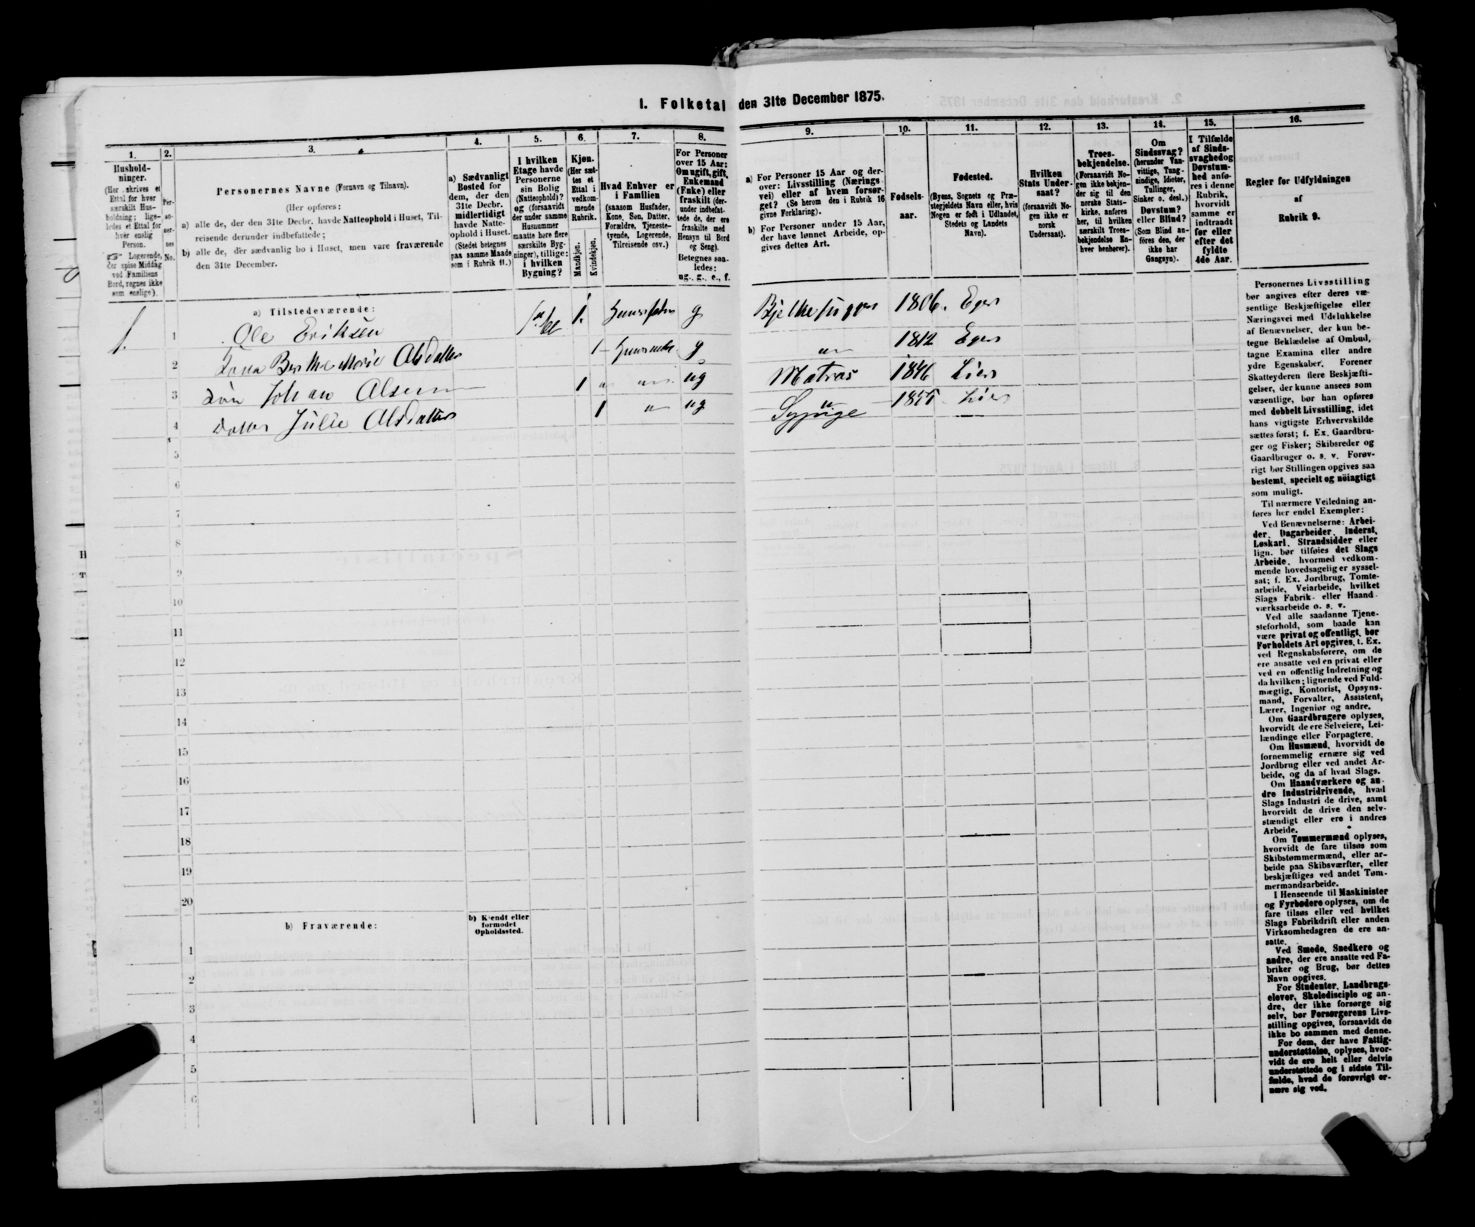 1. Folketal den 31te December 1875.
1.
Hushold-
ninger.
(Her skrives et
Ettal for hver
særskilt Hus-
holdning; lige-
ledes et Ettal for
hver enslig
Person.
☞ Logerende,
der spise Middag
ved Familiens
Bord, regnes ikke
som enslige).
2.
Per-
so-
ner-
nes
No.
3.
Personernes Navne (Fornavn og Tilnavn).
(Her opføres:
a) alle de, der den 31te Decbr. havde Natteophold i Huset, Til-
reisende derunder indbefattede;
b) alle de, der sædvanlig bo i Huset, men vare fraværende
den 31te December.
4.
a) Sædvanligt
Bosted for
dem, der den
31te Decbr.
midlertidigt
havde Natte-
ophold i Huset.
(Stedet betegnes
paa samme Maade
som i Rubrik 11.)
5.
I hvilken
Etage havde
Personerne
sin Bolig
(Natteophold)?
og (forsaavidt
der under samme
Husnummer
maatte høre flere
særskilte Byg-
ninger), tillige:
i hvilken
Bygning?
6.
Kjøn.
(Her sæt-
tes et
Ettal i
vedkom-
mende
Rubrik.
Mandkjøn.
Kvindekjøn.
7.
Hvad Enhver er
i Familien
(saasom Husfader,
Kone, Søn, Datter,
Forældre, Tjeneste-
tyende, Logerende,
Tilreisende osv.).
8.
For Personer
over 15 Aar:
Om ugift, gift,
Enkemand
(Enke) eller
fraskilt (der-
under indbefat-
tede de, der ere
fraskilte med
Hensyn til Bord
og Seng).
Betegnes saa-
ledes:
ug., g., e., f.
9.
a) For Personer 15 Aar og der-
over: Livsstilling (Nærings-
vei) eller af hvem forsør-
get? (Se herom den i Rubrik 16
givne Forklaring).
b) For Personer under 15 Aar,
der have lønnet Arbeide, op-
gives dettes Art.
10.
Fødsels-
aar.
11.
Fødested.
(Byens, Sognets og Præ-
stegjeldets Navn eller, hvis
Nogen er født i Udlandet,
Stedets og Landets
Navn).
12.
Hvilken
Stats Under-
saat?
(forsaavidt No-
gen ikke er
norsk
Undersaat).
13.
Troes-
bekjendelse.
(Forsaavidt No-
gen ikke bekjen-
der sig til den
norske Stats-
kirke, anføres
her, til hvilken
særskilt Troes-
bekjendelse En-
hver henhører).
14.
Om
Sindssvag?
(herunder Van-
vittige, Tung-
sindige, Idioter,
Tullinger,
Sinker o. desl.)
Døvstum?
eller Blind?
(Som Blind an-
føres den, der
ikke har
Gangsyn).
15.
I Tilfælde
af Sinds-
svaghed og
Døvstum-
hed anfø-
res i denne
Rubrik,
hvorvidt
samme er
indtraadt
før eller
efter det
fyldte
4de Aar.
16.
Regler for Udfyldningen
af
Rubrik 9.
a) Tilstedeværende:
1. 1 Ole Eriksen 1. Huusfader g 1806. Eger
2 Kona Berthe Marie Olsdatter 1 Huusmoder g " 1812 Eger
3 Søn Johan Olsen 1 " " ug Matros 1846 Lier
4 Datter Julie Olsdatter 1 " ug Sypige 1855 Lier
5
6
7
8
9
10
11
12
13
14
15
16
17
18
19
20
b) Fraværende:
b) Kjendt eller
formodet
Opholdssted.
1
2
3
4
5
6
Personernes Livsstilling
bør angives efter deres væ-
sentlige Beskjæftigelse eller
Næringsvei med Udelukkelse
af Benævnelser, der kun be-
tegne Beklædelse af Ombud,
tagne Examina eller andre
ydre Egenskaber. Forener
Skatteyderen flere Beskjæfti-
gelser, der kunne ansees som
væsentlige, bør han opføres
med dobbelt Livsstilling, idet
hans vigtigste Erhvervskilde
sættes først; f. Ex. Gaardbru-
ger og Fisker; Skibsreder og
Gaardbruger o. s. v. Forøv-
rigt bør Stillingen opgives saa
bestemt, specielt og nøiagtigt
som muligt.
Til nærmere Veiledning an-
føres her endel Exempler:
Ved Benævnelserne: Arbei-
der, Dagarbeider, Inderst,
Løskarl, Strandsidder eller
lign. bør tilføies det Slags
Arbeide, hvormed vedkom-
mende hovedsagelig er syssel-
sat; f. Ex. Jordbrug, Tomte-
arbeide, Veiarbeide, hvilket
Slags Fabrik- eller Haand-
værksarbeide o. s. v.
Ved alle saadanne Tjene-
steforhold, som baade kan
være privat og offentligt, bør
Forholdets Art opgives, t. Ex.
ved Regnskabsførere, om de
ere ansatte ved en privat eller
ved en offentlig Indretning og
da hvilken; lignende ved Fuld-
mægtig, Kontorist, Opsyns-
mand, Forvalter, Assistent,
Lærer, Ingeniør og andre.
Om Gaardbrugere oplyses,
hvorvidt de ere Selveiere, Lei-
lændinge eller Forpagtere.
Om Husmænd, hvorvidt de
fornemmelig ernære sig ved
Jordbrug eller ved andet Ar-
beide, og da af hvad Slags.
Om Haandværkere og an-
dre Industridrivende, hvad
Slags Industri de drive, samt
hvorvidt de drive den selv-
stændigt eller ere i andres
Arbeide.
Om Tømmermænd oplyses,
hvorvidt de fare tilsøs som
Skibstømmermænd, eller ar-
beide paa Skibsværfter, eller
beskjæftiges ved andet Tøm-
mermandsarbeide.
I Henseende til Maskinister
og Fyrbødere oplyses, om de
fare tilsøs eller ved hvilket
Slags Fabrikdrift eller anden
Virksomhedsgren de ere an-
satte.
Ved Smede, Snedkere og
andre, der ere ansatte ved Fa-
briker og Brug, bør dettes
Navn opgives.
For Studenter, Landbrugs-
elever, Skoledisciple og an-
dre, der ikke forsørge sig
selv, bør Forsørgerens Livs-
stilling opgives, forsaavidt de
ikke bo sammen med denne.
For dem, der have Fattig-
understøttelse, oplyses, hvor-
vidt de ere helt eller delvis
understøttede og i sidste Til-
fælde, hvad de forøvrigt er-
nære sig ved.